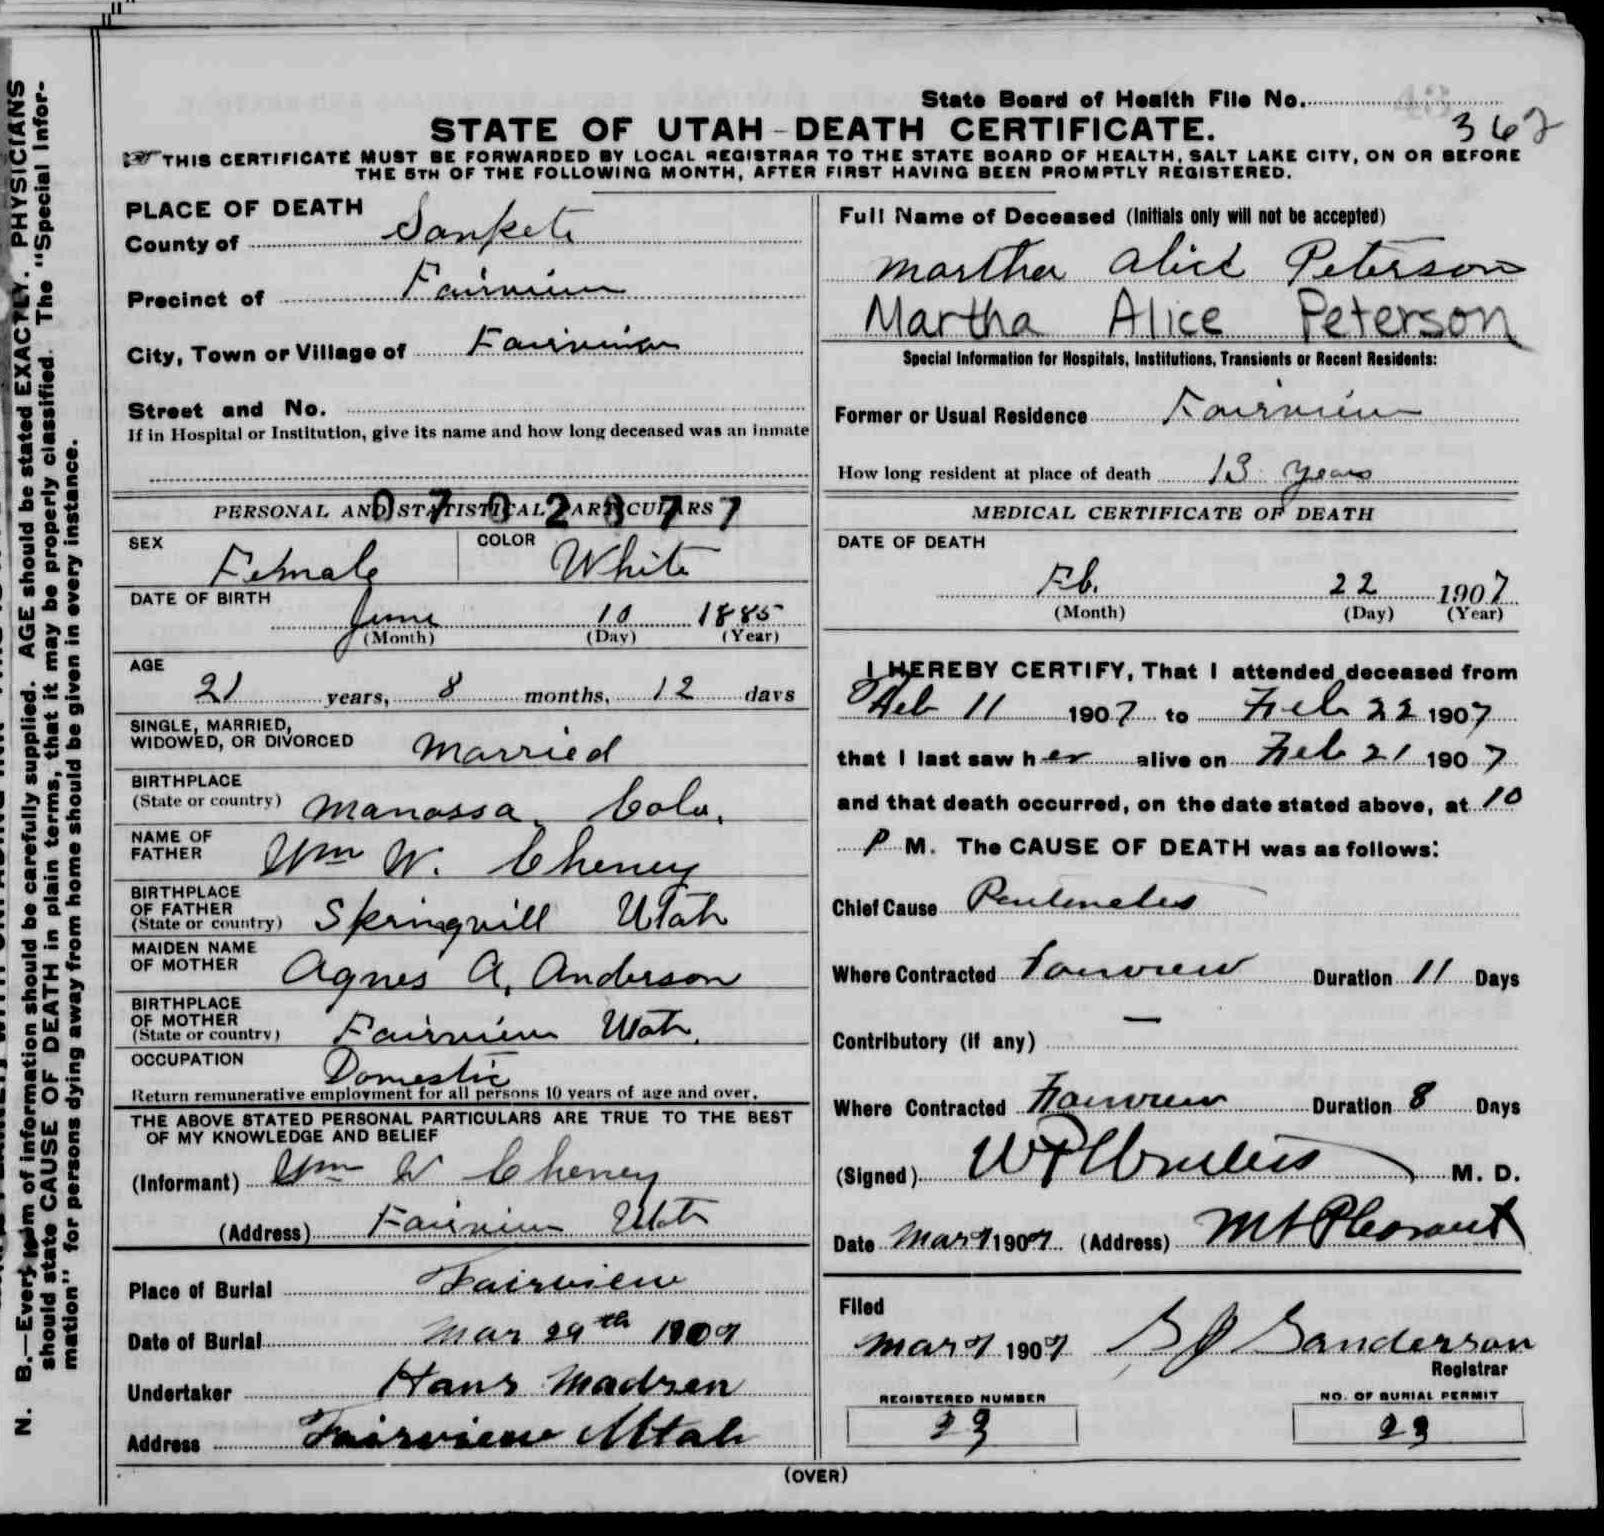 State Board of Health File No.
362
STATE OF UTAH-DEATH CERTIFICATE.
THIS CERTIFICATE MUST BE FORWARDED BY LOCAL REGISTRAR TO THE STATE BOARD OF HEALTH, SALT LAKE CITY, ON OR BEFORE
THE 5TH OF THE FOLLOWING MONTH, AFTER FIRST HAVING BEEN PROMPTLY REGISTERED.
N. B.—Every item of information should be carefully supplied. AGE should be stated EXACTLY. PHYSICIANS
should state CAUSE OF DEATH in plain terms, that it may be properly classified. The "Special Infor-
mation" for persons dying away from home should be given in every instance.
PLACE OF DEATH
County of Sanpete
Precinct of Fairview
City, Town or Village of Fairview
Street and No.
If in Hospital or Institution, give its name and how long deceased was an inmate
PERSONAL AND STATISTICAL PARTICULARS
0702877
SEX Female COLOR White
DATE OF BIRTH
June 10 1885
(Month) (Day) (Year)
AGE
21 years, 8 months, 12 days
SINGLE, MARRIED,
WIDOWED, OR DIVORCED Married
BIRTHPLACE
(State or country) Manassa, Colo.
NAME OF
FATHER Wm W. Cheney
BIRTHPLACE
OF FATHER
(State or country) Springvill Utah
MAIDEN NAME
OF MOTHER Agnes A. Anderson
BIRTHPLACE
OF MOTHER
(State or country) Fairview Utah.
OCCUPATION Domestic
Return remunerative employment for all persons 10 years of age and over.
THE ABOVE STATED PERSONAL PARTICULARS ARE TRUE TO THE BEST
OF MY KNOWLEDGE AND BELIEF
(Informant) Wm W Cheney
(Address) Fairview Utah
Place of Burial Fairview
Date of Burial Mar 29th 1907
Undertaker Hans Madsen
Address Fairview Utah
Full Name of Deceased (Initials only will not be accepted)
Martha Alice Peterson
Martha Alice Peterson
Special Information for Hospitals, Institutions, Transients or Recent Residents:
Former or Usual Residence Fairview
How long resident at place of death 13 years
MEDICAL CERTIFICATE OF DEATH
DATE OF DEATH
Feb. 22 1907
(Month) (Day) (Year)
I HEREBY CERTIFY, That I attended deceased from
Feb 11 1907 to Feb 22 1907
that I last saw her alive on Feb 21 1907
and that death occurred, on the date stated above, at 10
P M. The CAUSE OF DEATH was as follows:
Chief Cause
Where Contracted Fairview Duration 11 Days
Contributory (if any) —
Where Contracted Fairview Duration 8 Days
(Signed) M. D.
Date Mar 7 1907 (Address) Mt Pleasant
Filed
Mar 7 1907 Sanderson
Registrar
REGISTERED NUMBER
23
NO. OF BURIAL PERMIT
23
(OVER)